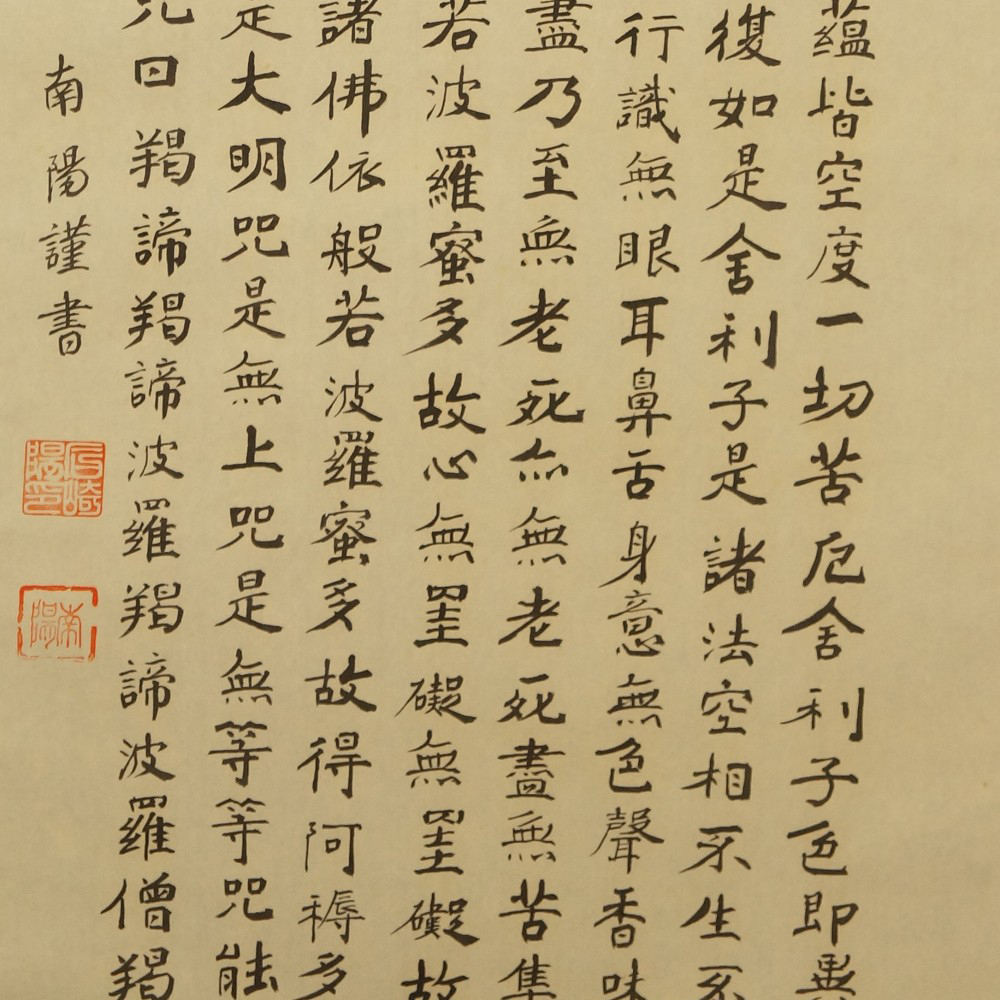 蘊皆空度一切苦厄舍利子色即
復如是舍利子是諸法空相不生不
行識無眼耳鼻舌身意無色聲香味
盡乃至無老死亦無老死盡無苦集
若波羅蜜多故心無罣礙無罣礙故
諸佛依般若波羅蜜多故得阿耨多
是大明咒是無上咒是無等等咒能
咒曰羯諦羯諦波羅羯諦波羅僧羯
南陽謹書
南陽